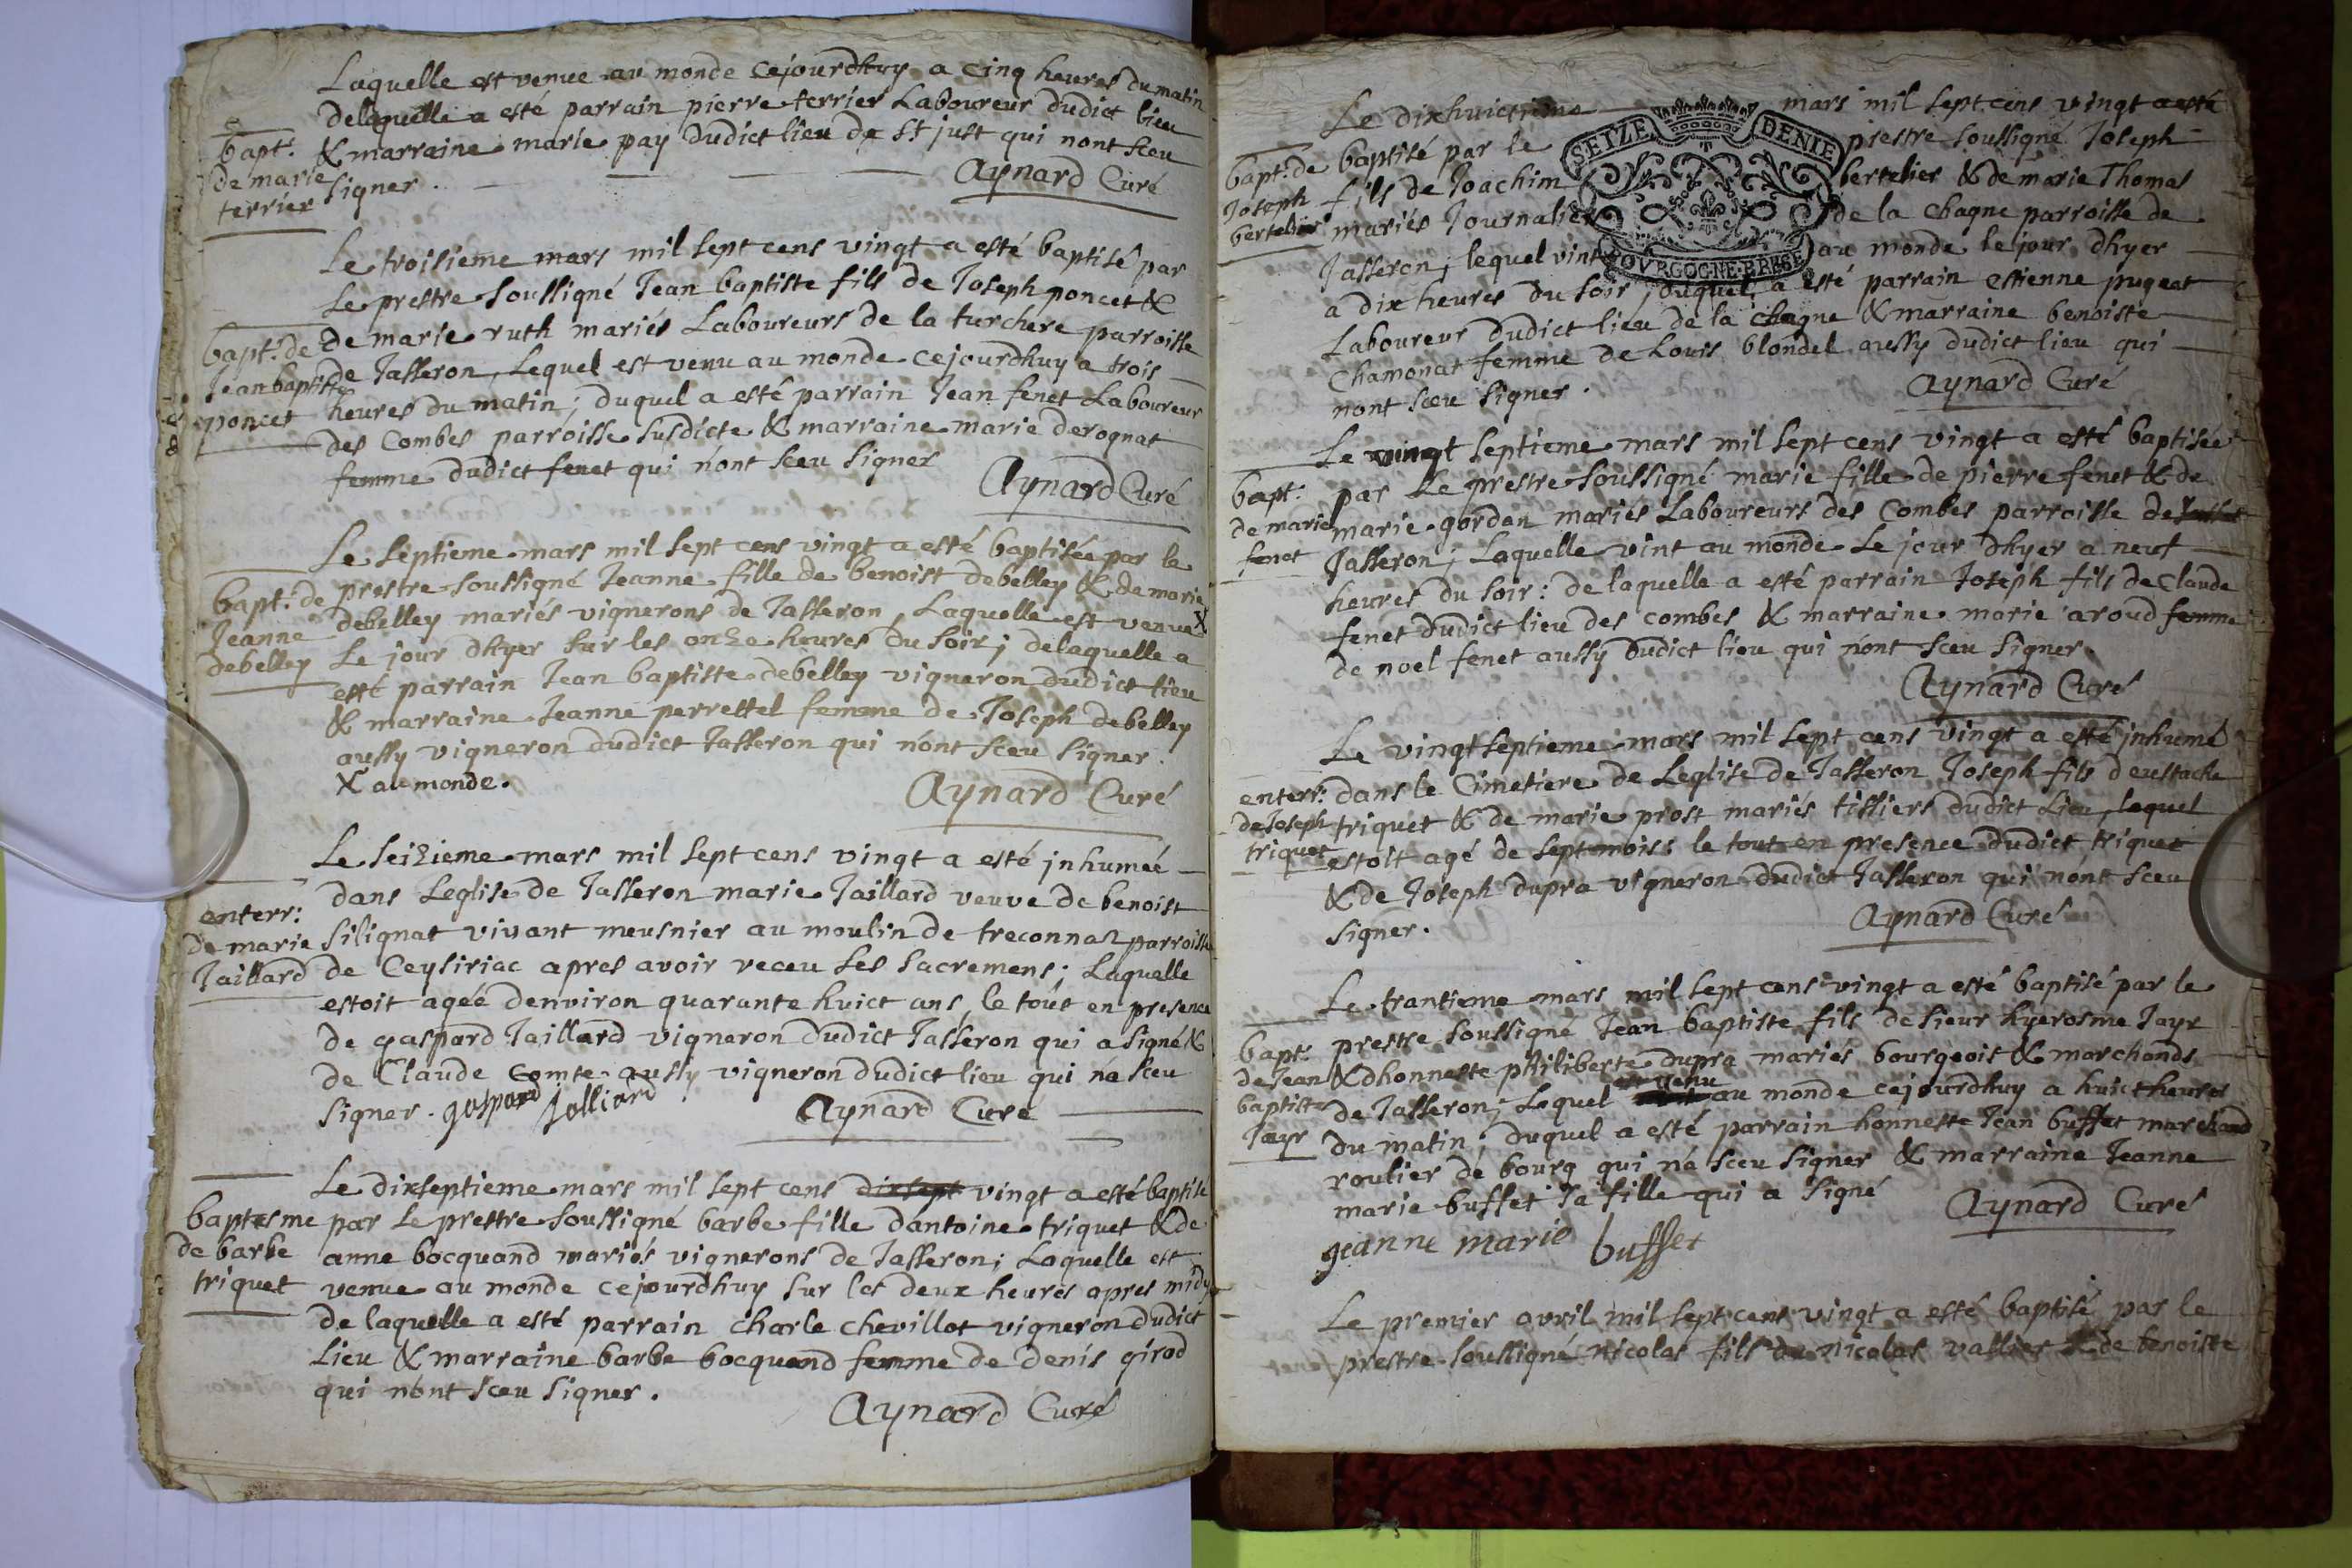 Laquelle est venue au monde cejourdhuy a cinq heures du matin
delaquelle a esté parrain pierre terrier Laboureur dudict lieu
bapt. & marraine marie pay dudict lieu de st just qui nont sceu
de marie signer.
terrier
Aynard Curé
Le troisieme mars mil sept cens vingt a esté baptisé par
Le prestre soussigné Jean baptiste fils de Joseph poncet &
bapt. de de marie ruth mariés Laboureurs de la turchere parroisse
Jean baptiste de Jasseron, Lequel est venu au monde cejourdhuy a trois
poncet heures du matin; duquel a esté parrain Jean fenet Laboureur
des Combes parroisse susdicte & marraine marie derognat
femme dudict fenet qui nont sceu signer
Aynard Curé
Le septieme mars mil sept cens vingt a esté baptisée par le
bapt. de prestre soussigné Jeanne fille de benoist debelley & de marie
Jeanne debelley mariés vignerons de Jasseron, Laquelle est venue X
debelley Le jour dhyer sur les onze heures du soir; delaquelle a
esté parrain Jean baptiste debelley vigneron dudict lieu
& marraine Jeanne perrettel femme de Joseph debelley
aussy vigneron dudict Jasseron qui nont sceu signer.
X au monde.
Aynard Curé
Le seizieme mars mil sept cens vingt a esté jnhumeé
dans Leglise de Jasseron marie Jaillard veuve de benoist
enterr: silignat vivant meusnier au moulin de treconnaz parroisse
de marie
Jaillard de Ceysiriac apres avoir receu ses sacremens; Laquelle
estoit ageé denviron quarante huict ans, le tout en presence
de gaspard Jaillard vigneron dudict Jasseron qui a signé &
de Claude Comte aussy vigneron dudict lieu qui na sceu
signer. gaspard Jalliard
Aynard Curé
Le dixseptieme mars mil sept cens dixsept vingt a esté baptisé
baptesme par Le prestre soussigné barbe fille dantoine triquet & de
de barbe anne bocquand mariés vignerons de Jasseron; Laquelle est
triquet venue au monde cejourdhuy sur les deux heures apres midy
de laquelle a esté parrain charle chevillot vigneron dudict
Lieu & marraine barbe bocquand femme de denis girod
qui nont sceu signer.
Aynard Curé
Le dixhuictieme mars mil sept cens vingt a esté
bapt. de baptisé par le prestre soussigné Joseph
Joseph fils de Joachim bertelier & de marie Thomas
bertelier mariés Journaliers de la chagne parroisse de
Jasseron; lequel vint au monde le jour dhyer
SEIZE DENIE
BOVRGOGNE·BRESSE
a dix heures du soir; duquel a esté parrain estienne pugeat
Laboureur dudict lieu de la chagne & marraine benoiste
Chamonat femme de Louis blondel aussy dudict lieu qui
nont sceu signer.
Aynard Curé
Le vingt septieme mars mil sept cens vingt a esté baptisée
bapt. par Le prestre soussigné marie fille de pierre fenet & de
de marie marie gordan mariés Laboureurs des Combes parroisse de
fenet Jasseron; Laquelle vint au monde Le jour dhyer a neuf
heures du soir: de laquelle a esté parrain Joseph fils de Claude
fenet dudict lieu des combes & marraine marie aroud femme
de noel fenet aussy dudict lieu qui nont sceu signer.
Aynard Curé
Le vingtseptieme mars mil sept cens vingt a esté jnhumé
enterr: dans le Cimetiere de Leglise de Jasseron Joseph fils deustache
de Joseph triquet & de marie prost mariés tissiers dudict Lieu, lequel
triquet estoit agé de sept mois: le tout en presence dudict triquet
& de Joseph dupra vigneron dudict Jasseron qui nont sceu
signer.
Aynard Curé
Le trantieme mars mil sept cens vingt a esté baptisé par le
bapt. prestre soussigné Jean baptiste fils de sieur hyerosme Jayr
de Jean & dhonneste philiberte dupra mariés bourgeois & marchands
baptiste de Jasseron; Lequel est venu au monde cejourdhuy a huict heures
Jayr du matin; duquel a esté parrain honneste Jean buffet marchand
roulier de bourg qui na sceu signer & marraine Jeanne
marie buffet sa fille qui a signé
Aynard Curé
geanne marie buffet
Le premier avril mil sept cens vingt a esté baptisé par le
prestre soussigné nicolas fils de nicolas vallier & de benoiste